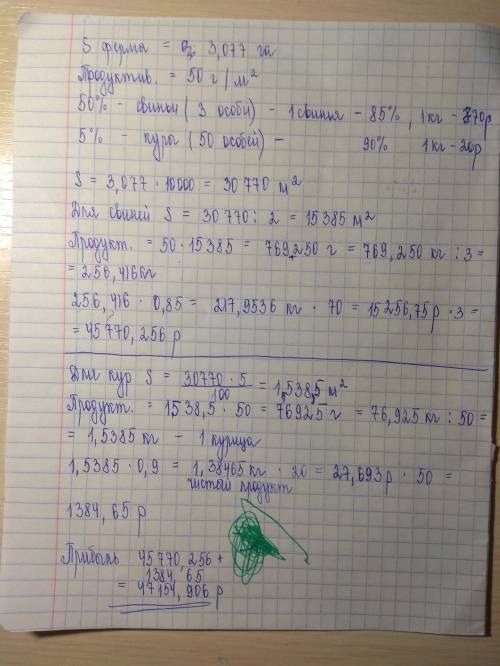 S ферма = 3,077 га
Продуктив. = 50 г/м²
50% - свиньи (3 особи) - 1 свинья - 85%, 1кг - 70р
5% - куры (50 особей) - 90% 1кг - 20р
S = 3,077 · 10000 = 30770 м²
Для свиней S = 30770 : 2 = 15385 м²
Продукт. = 50 · 15385 = 769250 г = 769,250 кг : 3 =
= 256,416кг
256,416 · 0,85 = 217,9536 кг · 70 = 15256,75р · 3 =
= 45770,256 р
Для кур S = 30770 · 5 / 100 = 1538,5 м²
Продукт. = 1538,5 · 50 = 76925 г = 76,925 кг : 50 =
= 1,5385 кг - 1 курица
1,5385 · 0,9 = 1,38465 кг · 20 = 27,693 р · 50 =
чистый продукт
1384,65 р
Прибыль 45770,256 +
1384,65
= 47154,906 р